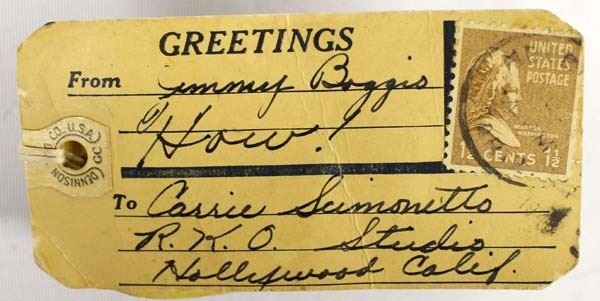 GREETINGS
From Jimmy Boggis
How!
To Carrie Simonetto
R.K.O. Studio
Hollywood Calif.
UNITED
STATES
POSTAGE
MARTHA
WASHINGTON
1½ CENTS 1½
CO., U.S.A.
GC
(DENNISON